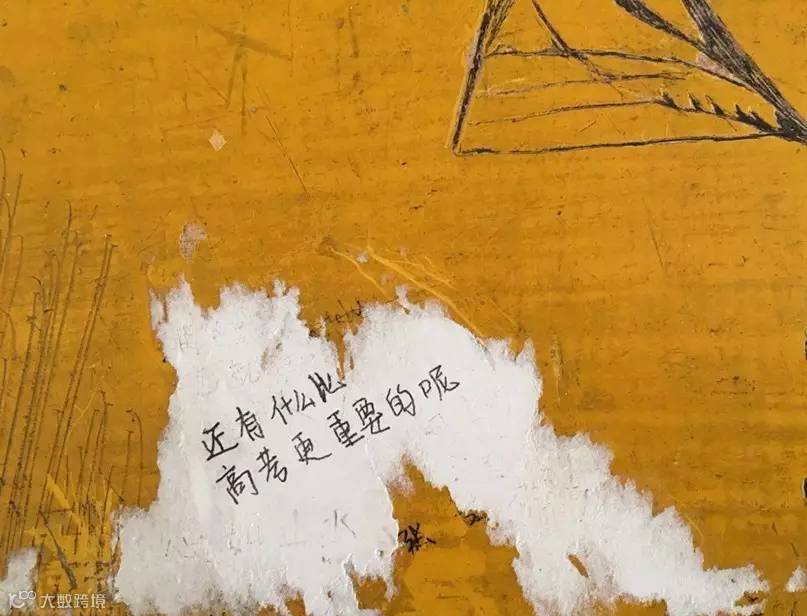 还有什么比
高考更重要的呢
大数跨境